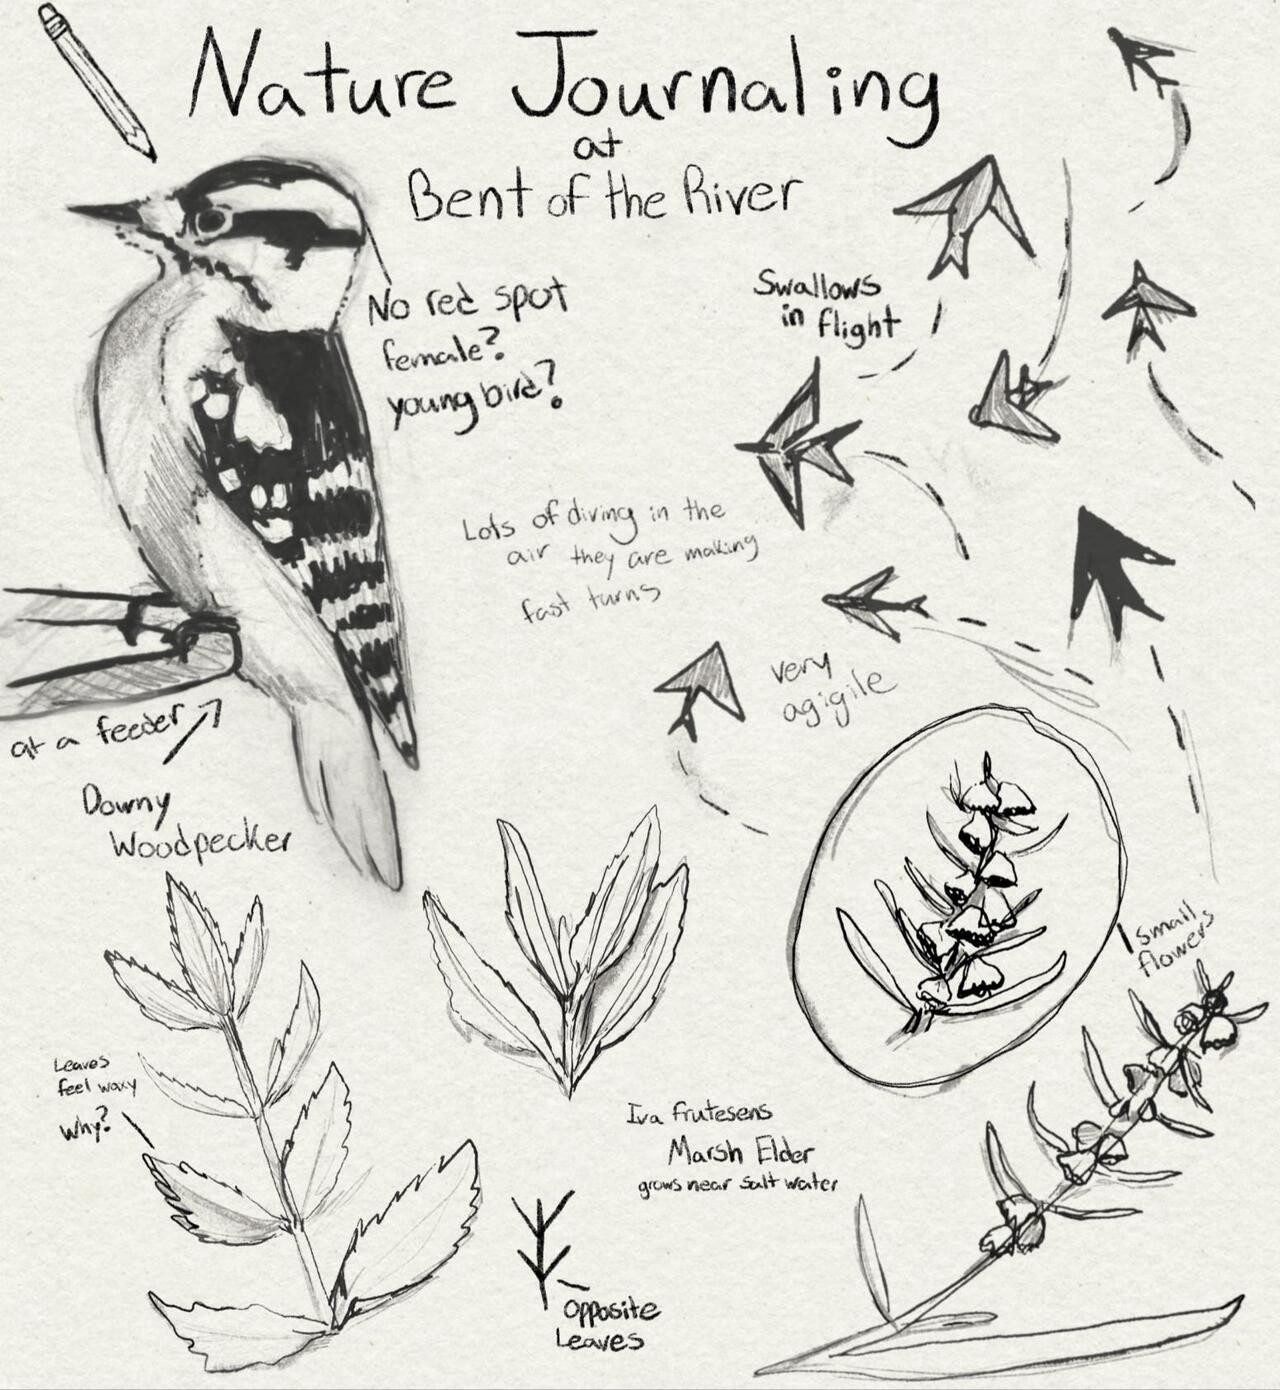 Nature Journaling
at
Bent of the River
No red spot
female?
young bird?
Swallows
in flight
Lots of diving in the
air they are making
fast turns
very
agigile
at a feeder
Downy
Woodpecker
small
flowers
Leaves
feel waxy
why?
Iva frutesens
Marsh Elder
grows near salt water
Opposite
Leaves